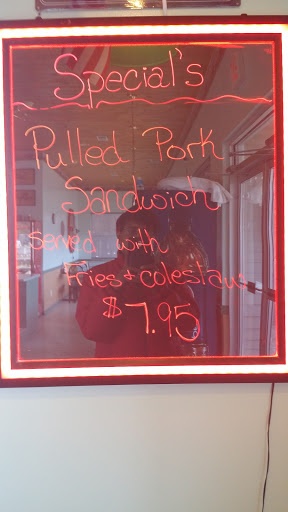 Special's
Pulled Pork
Sandwich
served with
Fries + coleslaw
$7.95